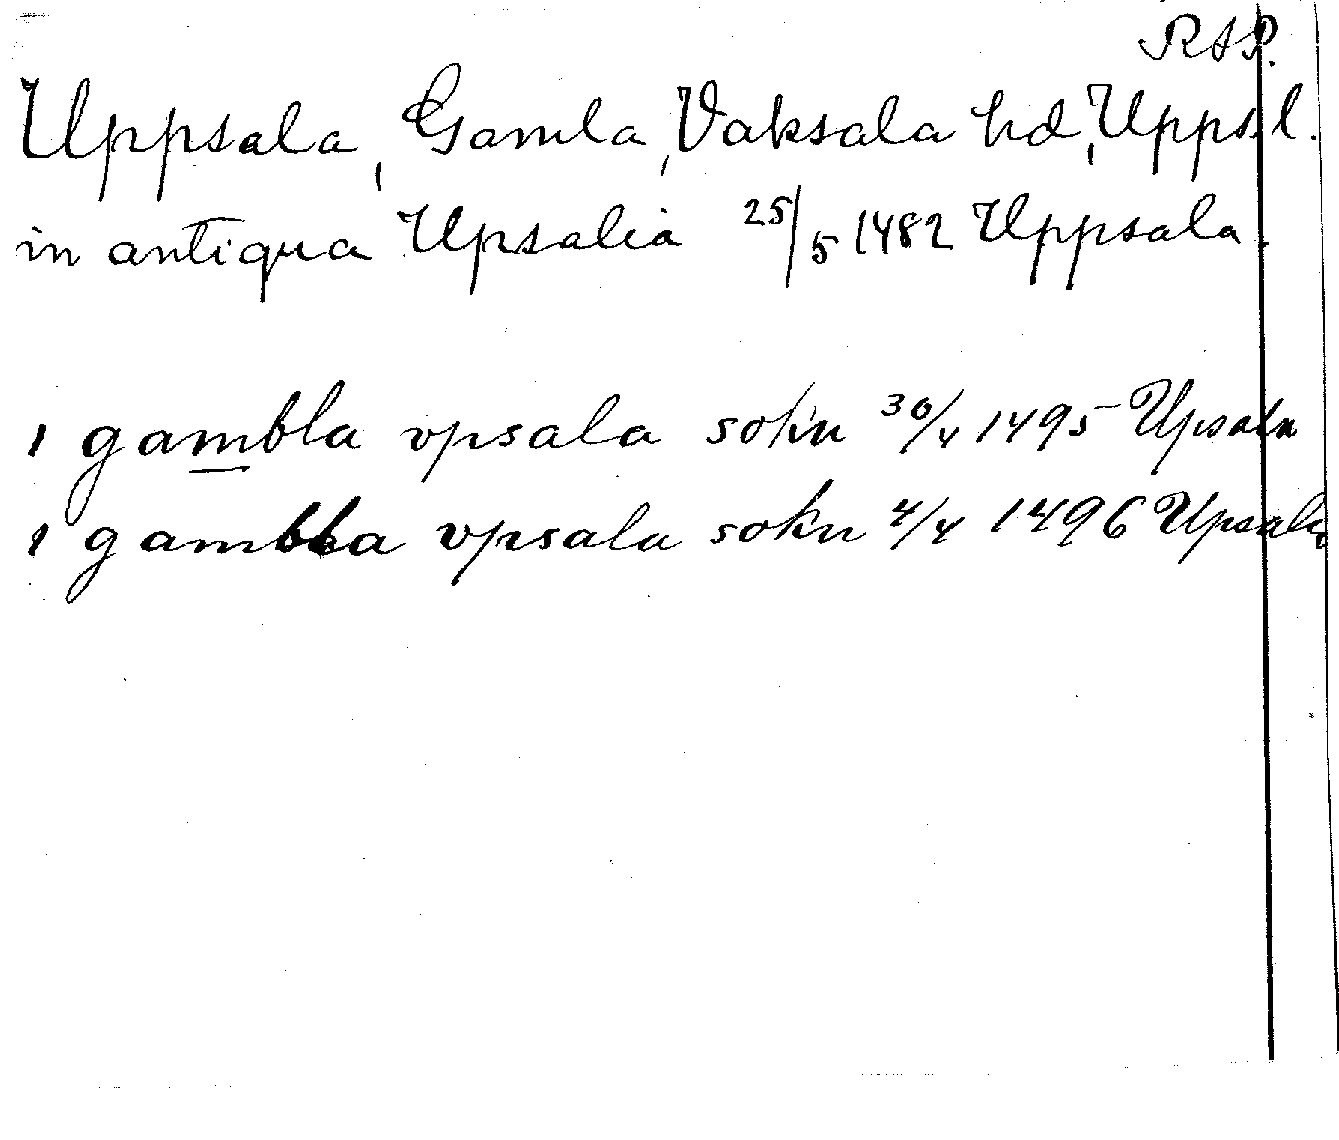 RAP.
Uppsala, Gamla, Vaksala hd, Uppsl.
in antiqua Upsalia 25/5 1482 Uppsala.
1 gambla vpsala sokn 30/4 1495 Upsala
1 gambla vpsala sokn 4/4 1496 Upsala